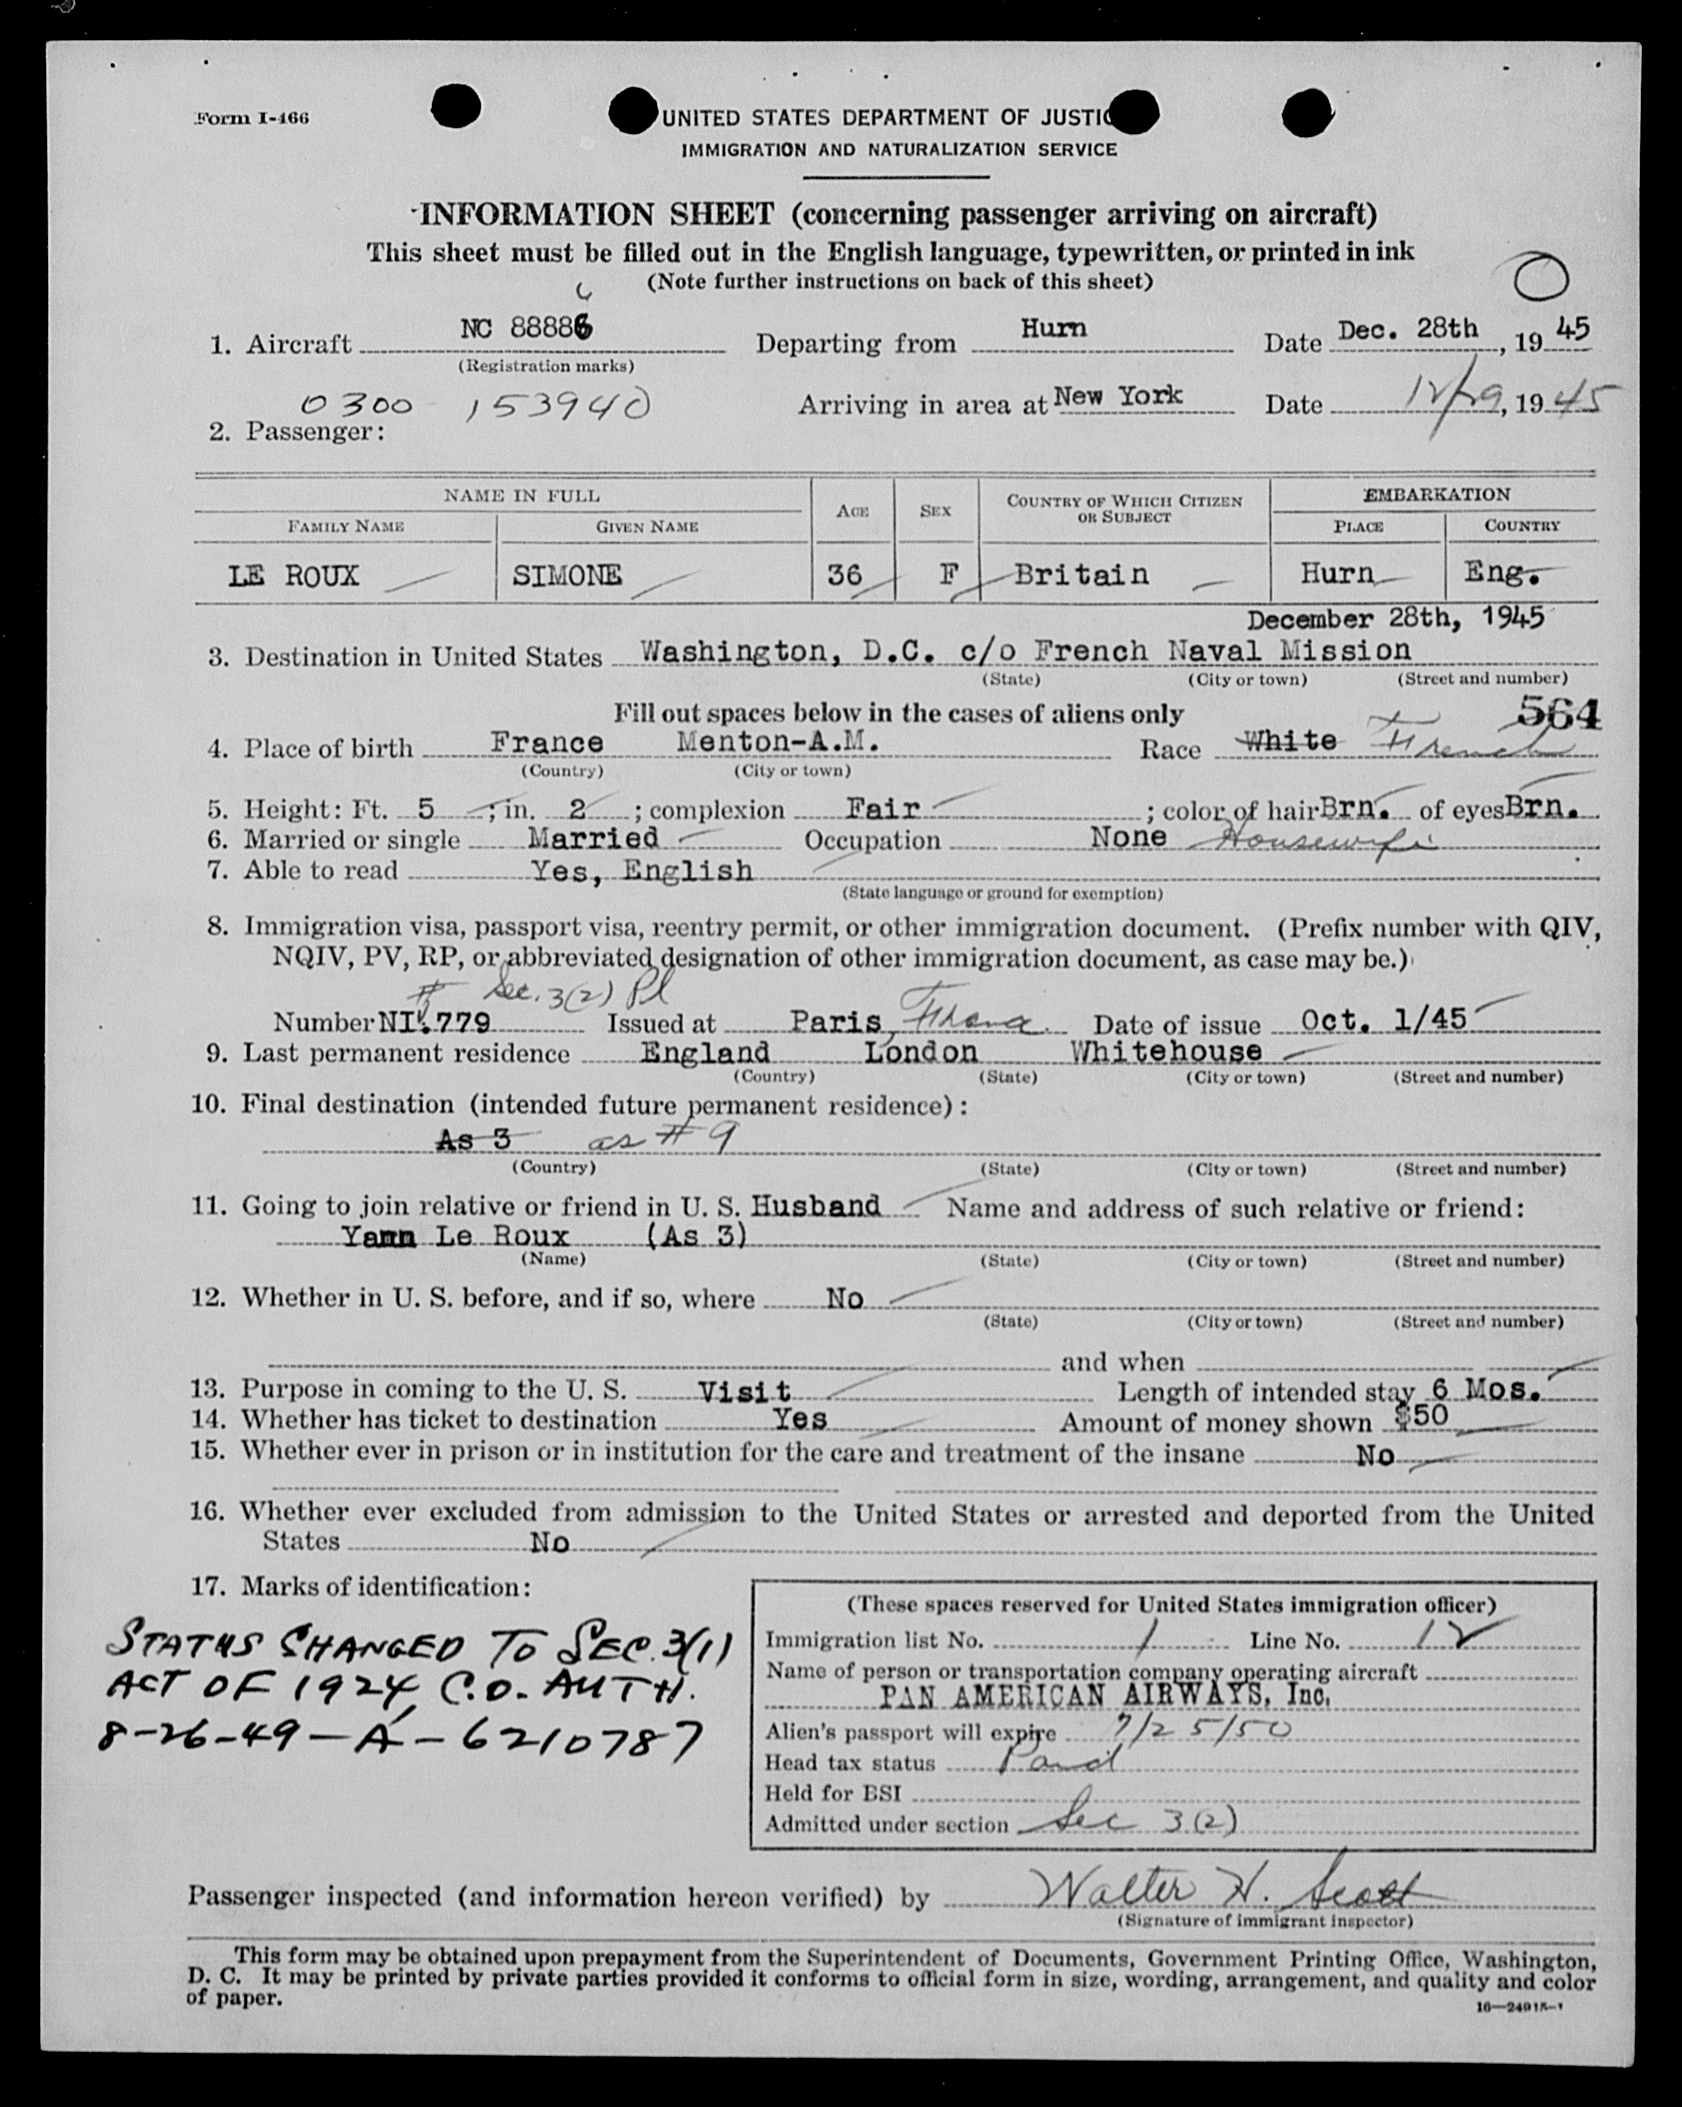 Form I-466
UNITED STATES DEPARTMENT OF JUSTIC
IMMIGRATION AND NATURALIZATION SERVICE
INFORMATION SHEET (concerning passenger arriving on aircraft)
This sheet must be filled out in the English language, typewritten, or printed in ink
(Note further instructions on back of this sheet)
6
1. Aircraft NC 88886 Departing from Hurn Date Dec. 28th, 1945
(Registration marks)
0300 153940 Arriving in area at New York Date 12/29, 1945
2. Passenger:
NAME IN FULL AGE SEX COUNTRY OF WHICH CITIZEN OR SUBJECT EMBARKATION
FAMILY NAME GIVEN NAME PLACE COUNTRY
LE ROUX SIMONE 36 F Britain Hurn Eng.
December 28th, 1945
3. Destination in United States Washington, D.C. c/o French Naval Mission
(State) (City or town) (Street and number)
Fill out spaces below in the cases of aliens only 564
4. Place of birth France Menton-A.M. Race White French
(Country) (City or town)
5. Height: Ft. 5 ; in. 2 ; complexion Fair ; color of hair Brn. of eyes Brn.
6. Married or single Married Occupation None Housewife
7. Able to read Yes, English
(State language or ground for exemption)
8. Immigration visa, passport visa, reentry permit, or other immigration document. (Prefix number with QIV,
NQIV, PV, RP, or abbreviated designation of other immigration document, as case may be.)
# Sec. 3(2) Pl
Number NIV.779 Issued at Paris, France Date of issue Oct. 1/45
9. Last permanent residence England London Whitehouse
(Country) (State) (City or town) (Street and number)
10. Final destination (intended future permanent residence):
As 3 as # 9
(Country) (State) (City or town) (Street and number)
11. Going to join relative or friend in U. S. Husband Name and address of such relative or friend:
Yann Le Roux (As 3)
(Name) (State) (City or town) (Street and number)
12. Whether in U. S. before, and if so, where No
(State) (City or town) (Street and number)
and when
13. Purpose in coming to the U. S. Visit Length of intended stay 6 Mos.
14. Whether has ticket to destination Yes Amount of money shown $50
15. Whether ever in prison or in institution for the care and treatment of the insane No
16. Whether ever excluded from admission to the United States or arrested and deported from the United
States No
17. Marks of identification:
STATUS CHANGED TO SEC. 3(1)
ACT OF 1924, C.O. AUTH.
8-26-49-A-6210787
(These spaces reserved for United States immigration officer)
Immigration list No. 1 Line No. 12
Name of person or transportation company operating aircraft
PAN AMERICAN AIRWAYS, Inc.
Alien's passport will expire 7/25/50
Head tax status Paid
Held for BSI
Admitted under section Sec 3(2)
Passenger inspected (and information hereon verified) by Walter H. Scott
(Signature of immigrant inspector)
This form may be obtained upon prepayment from the Superintendent of Documents, Government Printing Office, Washington,
D. C. It may be printed by private parties provided it conforms to official form in size, wording, arrangement, and quality and color
of paper.
16—24915-1